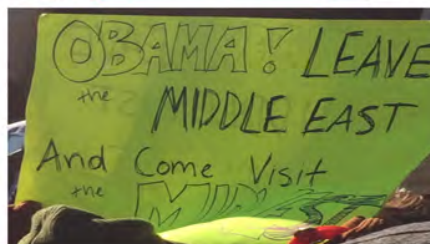 OBAMA! LEAVE
the MIDDLE EAST
And Come Visit
the MIDWEST